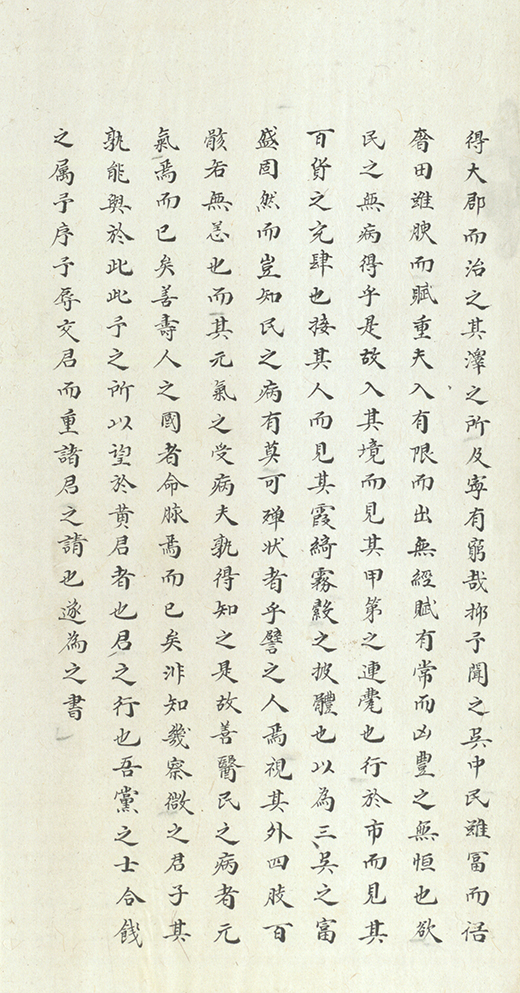 得大郡而治之其澤之所及寧有窮哉抑予聞之吳中民雖冨而俗
奢田雖腴而賦重夫入有限而出無經賦有常而凶豊之無恒也欲
民之無病得乎是故入其境而見其甲第之連甍也行於市而見其
百貨之充肆也接其人而見其霞綺霧縠之披體也以為三吳之富
盛固然而豈知民之病有莫可殫状者乎譬之人焉視其外四肢百
骸若無恙也而其元氣之受病夫孰得知之是故善醫民之病者元
氣焉而已矣善壽人之國者命脉焉而已矣非知幾察微之君子其
孰能與於此此予之所以望於黄君者也君之行也吾黨之士合餞
之属予序予辱交君而重諸君之請也遂為之書